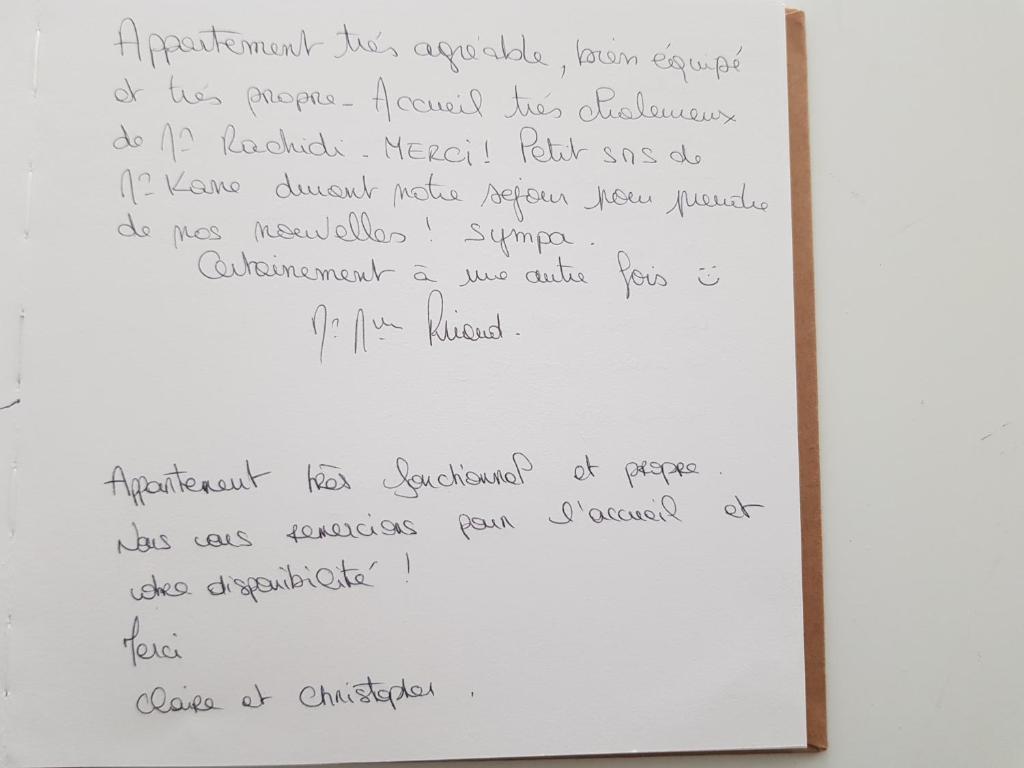 Appartement très agréable, bien équipé
et très propre - Accueil très chaleureux
de Mr Rachidi - MERCI ! Petit sms de
Mr Kane durant notre séjour pour prendre
de nos nouvelles ! Sympa.
Certainement à une autre fois
Mr Mme
Appartement très fonctionnel et propre.
Nous vous remercions pour l'accueil et
votre disponibilité !
Merci
Claire et Christopher.